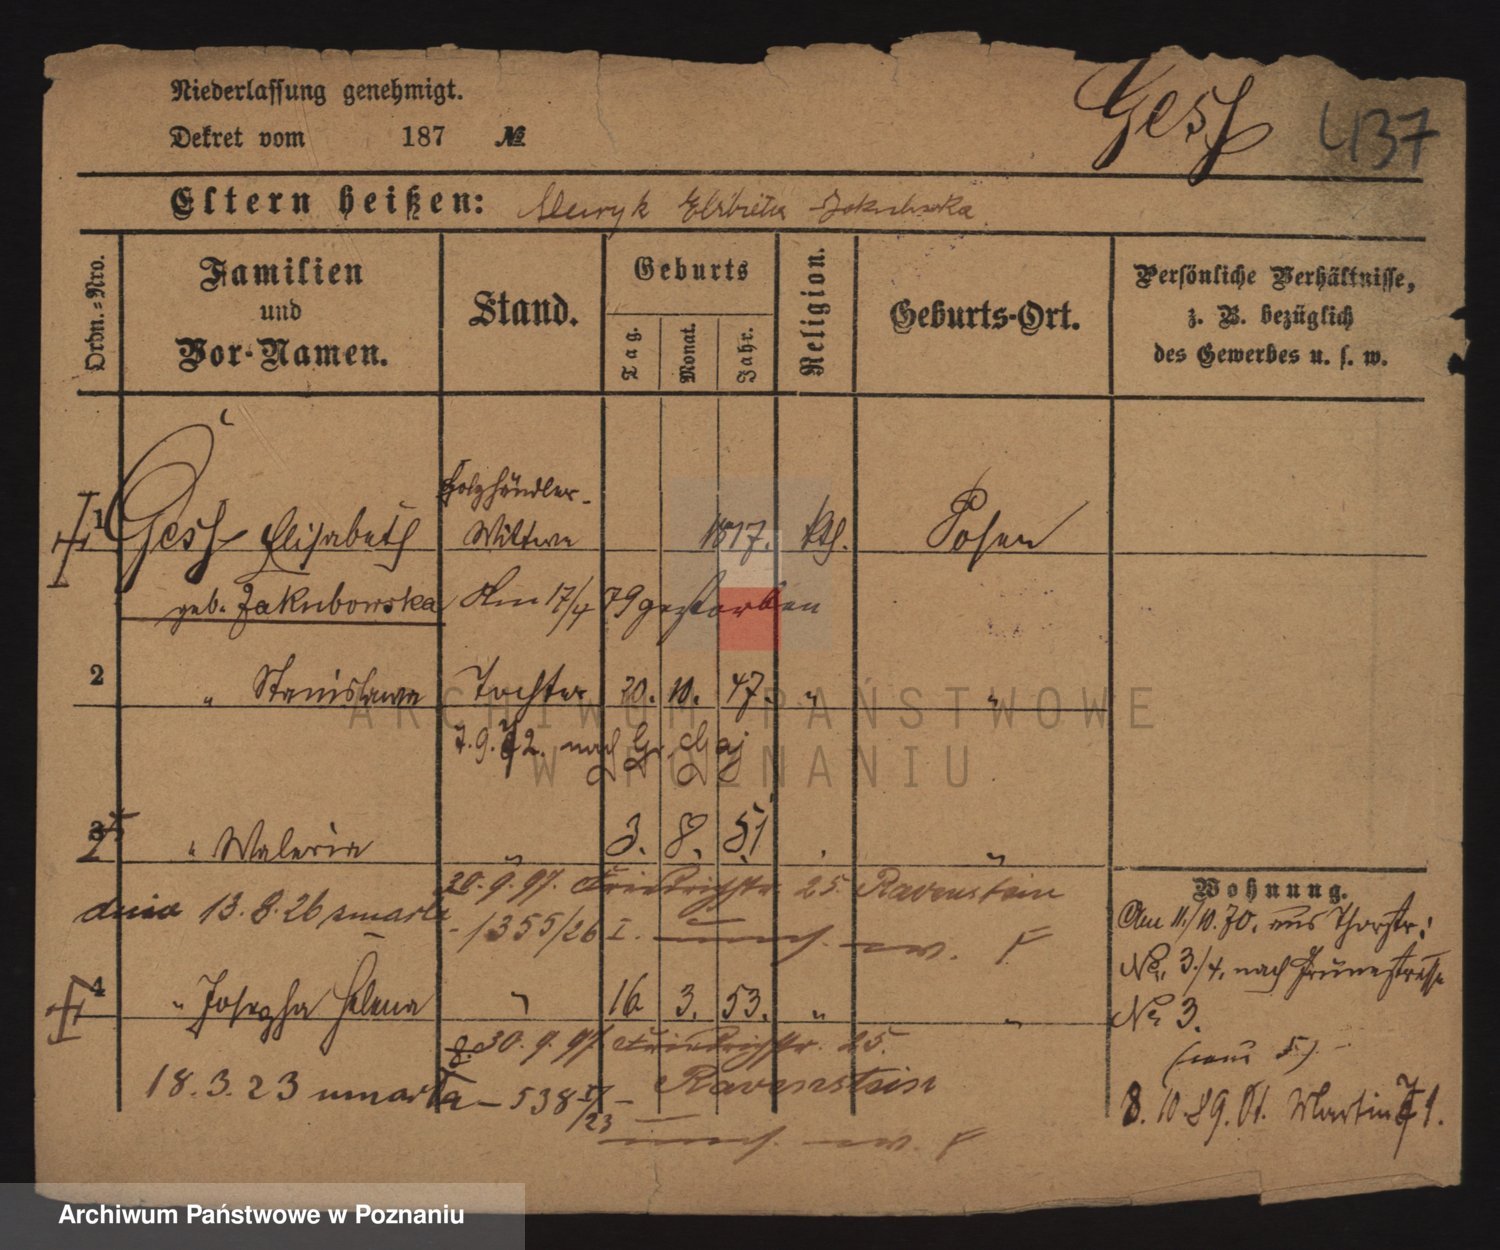 Niederlassung genehmigt.
Gess 437
Dekret vom 187 №
Eltern heißen: Henryk Elżbieta Jakubowska
Ordn.=Nro.
Familien
und
Vor-Namen.
Stand.
Geburts
Tag.
Monat.
Jahr.
Religion.
Geburts-Ort.
Persönliche Verhältnisse,
z. B. bezüglich
des Gewerbes u. s. w.
Holzhändler-
1 Gess Elisabeth Wittwe 1817. kth. Posen
geb. Jakubowska Am 17/4 79 gestorben
2 " Stanislawa Tochter 20. 10. 47. " "
7.9.72. nach Gr. Gaj
3 " Waleria " 3. 8. 51 "
30.9.97. Friedrichstr. 25. Ravenstein
dnia 13.8.26 zmarła - 1355/26 I.
4 " Josepha Helena " 16 3. 53. " "
30.9.97 Friedrichstr. 25.
Ravenstein
18.3.23 umarła - 538 I/23 -
Wohnung.
Am 11/10.70. aus Thorstr:
No. 3/4, nach Grünestrasse
No 3.
(neu 5)
8.10.89. St. Martin 71.
ARCHIWUM PAŃSTWOWE
W POZNANIU
Archiwum Państwowe w Poznaniu